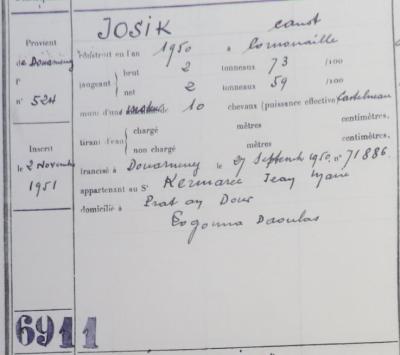 JOSIK canot
Provient
de Douarnenez
fº
nº 524
construit en l'an 1950 à Cornouaille
jaugeant brut 2 tonneaux 73 /100
net 2 tonneaux 59 /100
muni d'une de 10 chevaux (puissance effective) Castelneau
tirant d'eau chargé mètres centimètres,
non chargé mètres centimètres,
Inscrit
le 2 Novembre
1951
francisé à Douarnenez le 27 Septembre 1950, nº 71886.
appartenant au Sr Kermarec Jean Marie
domicilié à Prat an Dour
Logonna Daoulas
6911